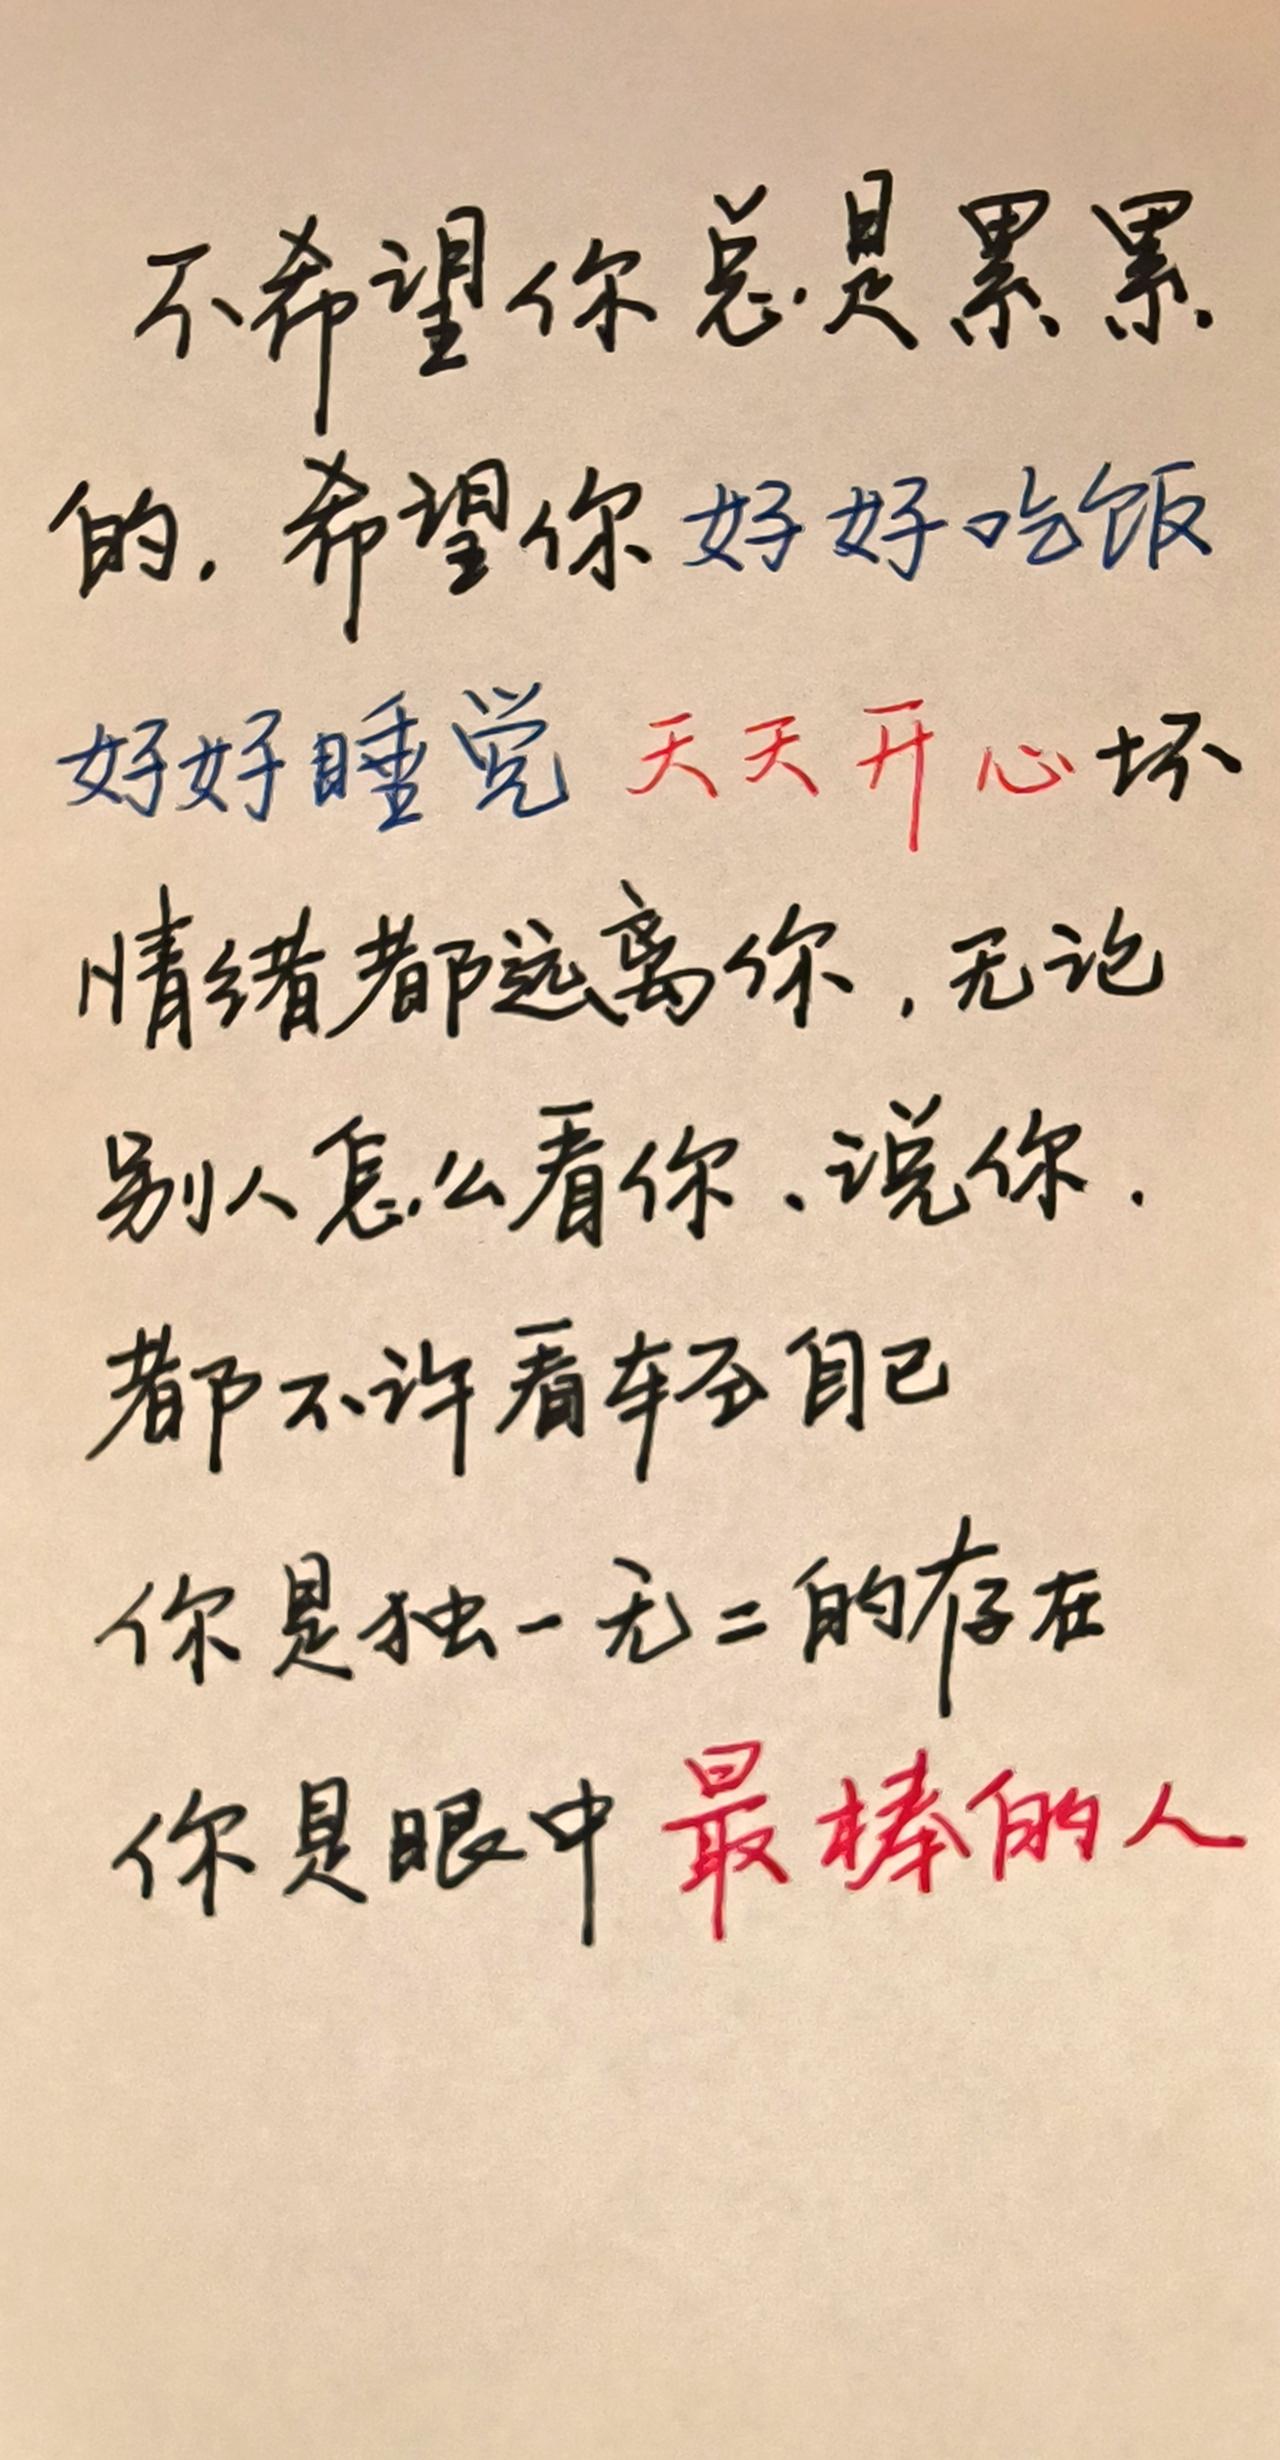 不希望你总是累累
的.希望你好好吃饭
好好睡觉 天天开心坏
情绪都远离你,无论
别人怎么看你、说你.
都不许看轻自己
你是独一无二的存在
你是眼中最棒的人